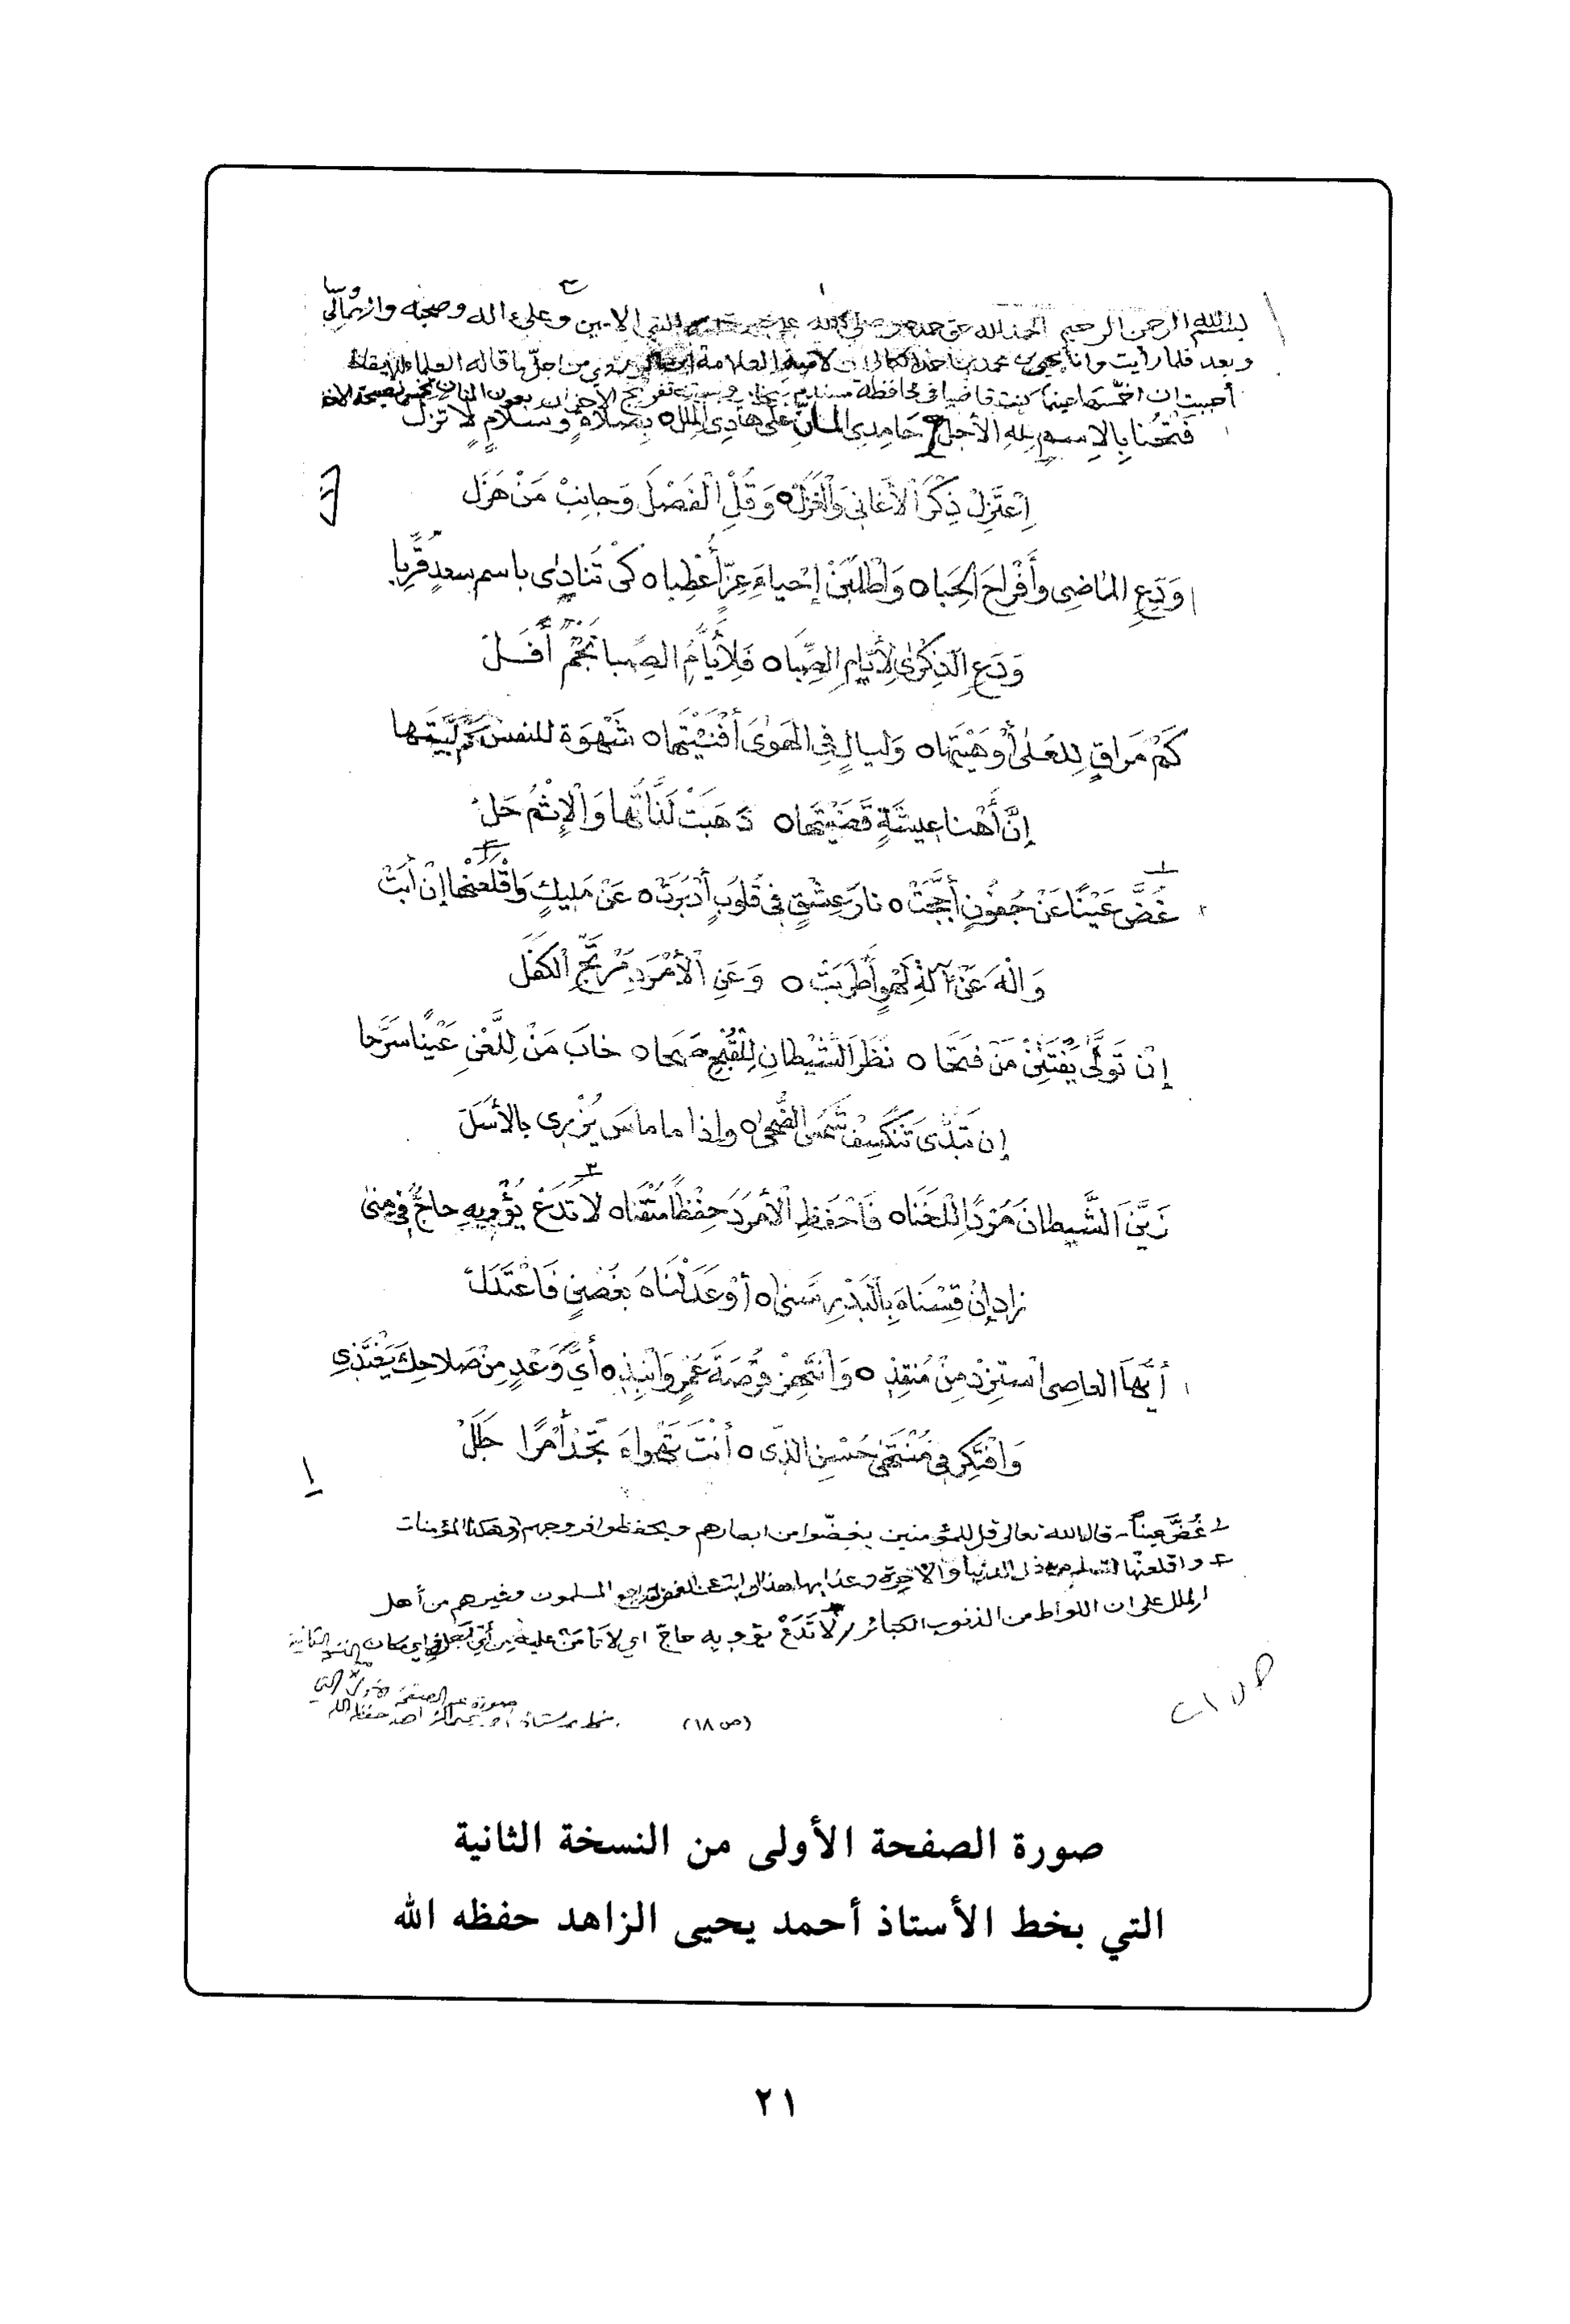 بسم الله الرحمن الرحيم الحمد لله حق حمده وصلى الله النبي الامين وعلى اله وصحبه
وبعد فلما رأيت وانا يحيى بن محمد بن لامية العلامة ابن الوردي من اجل ما قاله العلماء
أحببت ان اخمسها عندما كنت قاضيا في محافظة تفريج الاحزان بعون
فَتْحُنا بِالاِسمِ لِلهِ الأجل حَامِدِي المنانِّ على هَادِي المِلل ه بِصلاةٍ وسلامٍ لا تزل
اِعْتَزِلْ ذِكْرَ الأغاني وَالْغَزَلْ ه وَقُلِ الْفَصْلَ وَجانِبْ مَنْ هَزَل
وَدَعِ الماضِي وأَفْراحَ الحِبا ه وَاطْلُبَنْ إحْياءَ عِزٍّ أعْطِبا ه كَيْ تُنادى باسم سعدٍ قُرِّبا
وَدَعِ الذِكْرى لِأَيّامِ الصِّبا ه فَلِأَيَّامِ الصِبا نَجْمٌ أَفَلْ
كَمْ مَراقٍ لِلعُلى أوْهَيْتَها ه وَليالٍ في الهَوى أفْنَيْتَها ه شَهْوَة للنفس كم لَبَّيْتَها
إنَّ أَهْنا عِيشَةٍ قَضَيْتَها ه ذَهَبَتْ لَذَّاتُها وَالْإثْمُ حَلْ
غُضَّ عَيْنًا عَنْ جُفُونٍ أجَّجَتْ ه نارَ عِشْقٍ في قُلُوبٍ أَدْبَرَتْ ه عَنْ مَلِيكٍ وَاقْلَعَنْها إنْ أبَتْ
وَالْهَ عَنْ آلَةِ لَهْوٍ أطْرَبَتْ ه وَعَنِ الْأمْرَدِ مُرْتَجِّ الكَفَلْ
إنْ تَوَلَّى يَفْتَتِنْ مَنْ فتحا ه نَظَرَ الشَّيْطانِ لِلقُبْحِ ه خابَ مَنْ لِلَّغْيِ عَيْنًا سَرَّحا
إن تَبَدَّى تَنْكَسِفْ شَمسُ الضُّحى ه وإذا ما ماسَ يُزْرِي بالأسَلْ
زَيَّنَ الشَّيطانُ مُرْدًا لِلخَنا ه فَاحْفَظِ الأمْرَدَ حِفْظًا مُتْقَنا ه لا تَدَعْ يُؤْوِيهِ حاجٌّ في مِنى
زاد إنْ قِسْناهُ بِالْبَدْرِ سَنى ه أوْ عَدَلْناهُ بغُصْنٍ فَاعْتَدَلْ
أيُّها العاصي اسْتَزِدْ مِنْ مُنْقِذِ ه وَانْتَهِزْ فُرْصَةَ عُمْرٍ وَانْبِذِ ه أيَّ وَعْدٍ مِنْ صَلاحِكَ يَغْتَذِي
وَافْتَكِرْ في مُنْتَهى حُسْنِ الذي ه أنْتَ تَهْواهُ تَجِدْ أمْرًا جَلَلْ
١ غُضَّ عيناً - قال الله تعالى قل للمؤمنين يغضّوا من ابصارهم ويحفظوا فروجهم وهكذا المؤمنات
٢ واقلعنها لتسلم من ذل الدنيا والاخرة وعذابها المسلمون وغيرهم من أهل
الملل على ان اللواط من الذنوب الكبائر ٣ لا تَدَعْ يؤويه حاجّ اي لا تأمن عليه
صورة عن الصفحة الأولى التي
(ص ١٨) بخط الأستاذ أحمد يحيى الزاهد حفظه الله
صورة الصفحة الأولى من النسخة الثانية
التي بخط الأستاذ أحمد يحيى الزاهد حفظه الله
٢١